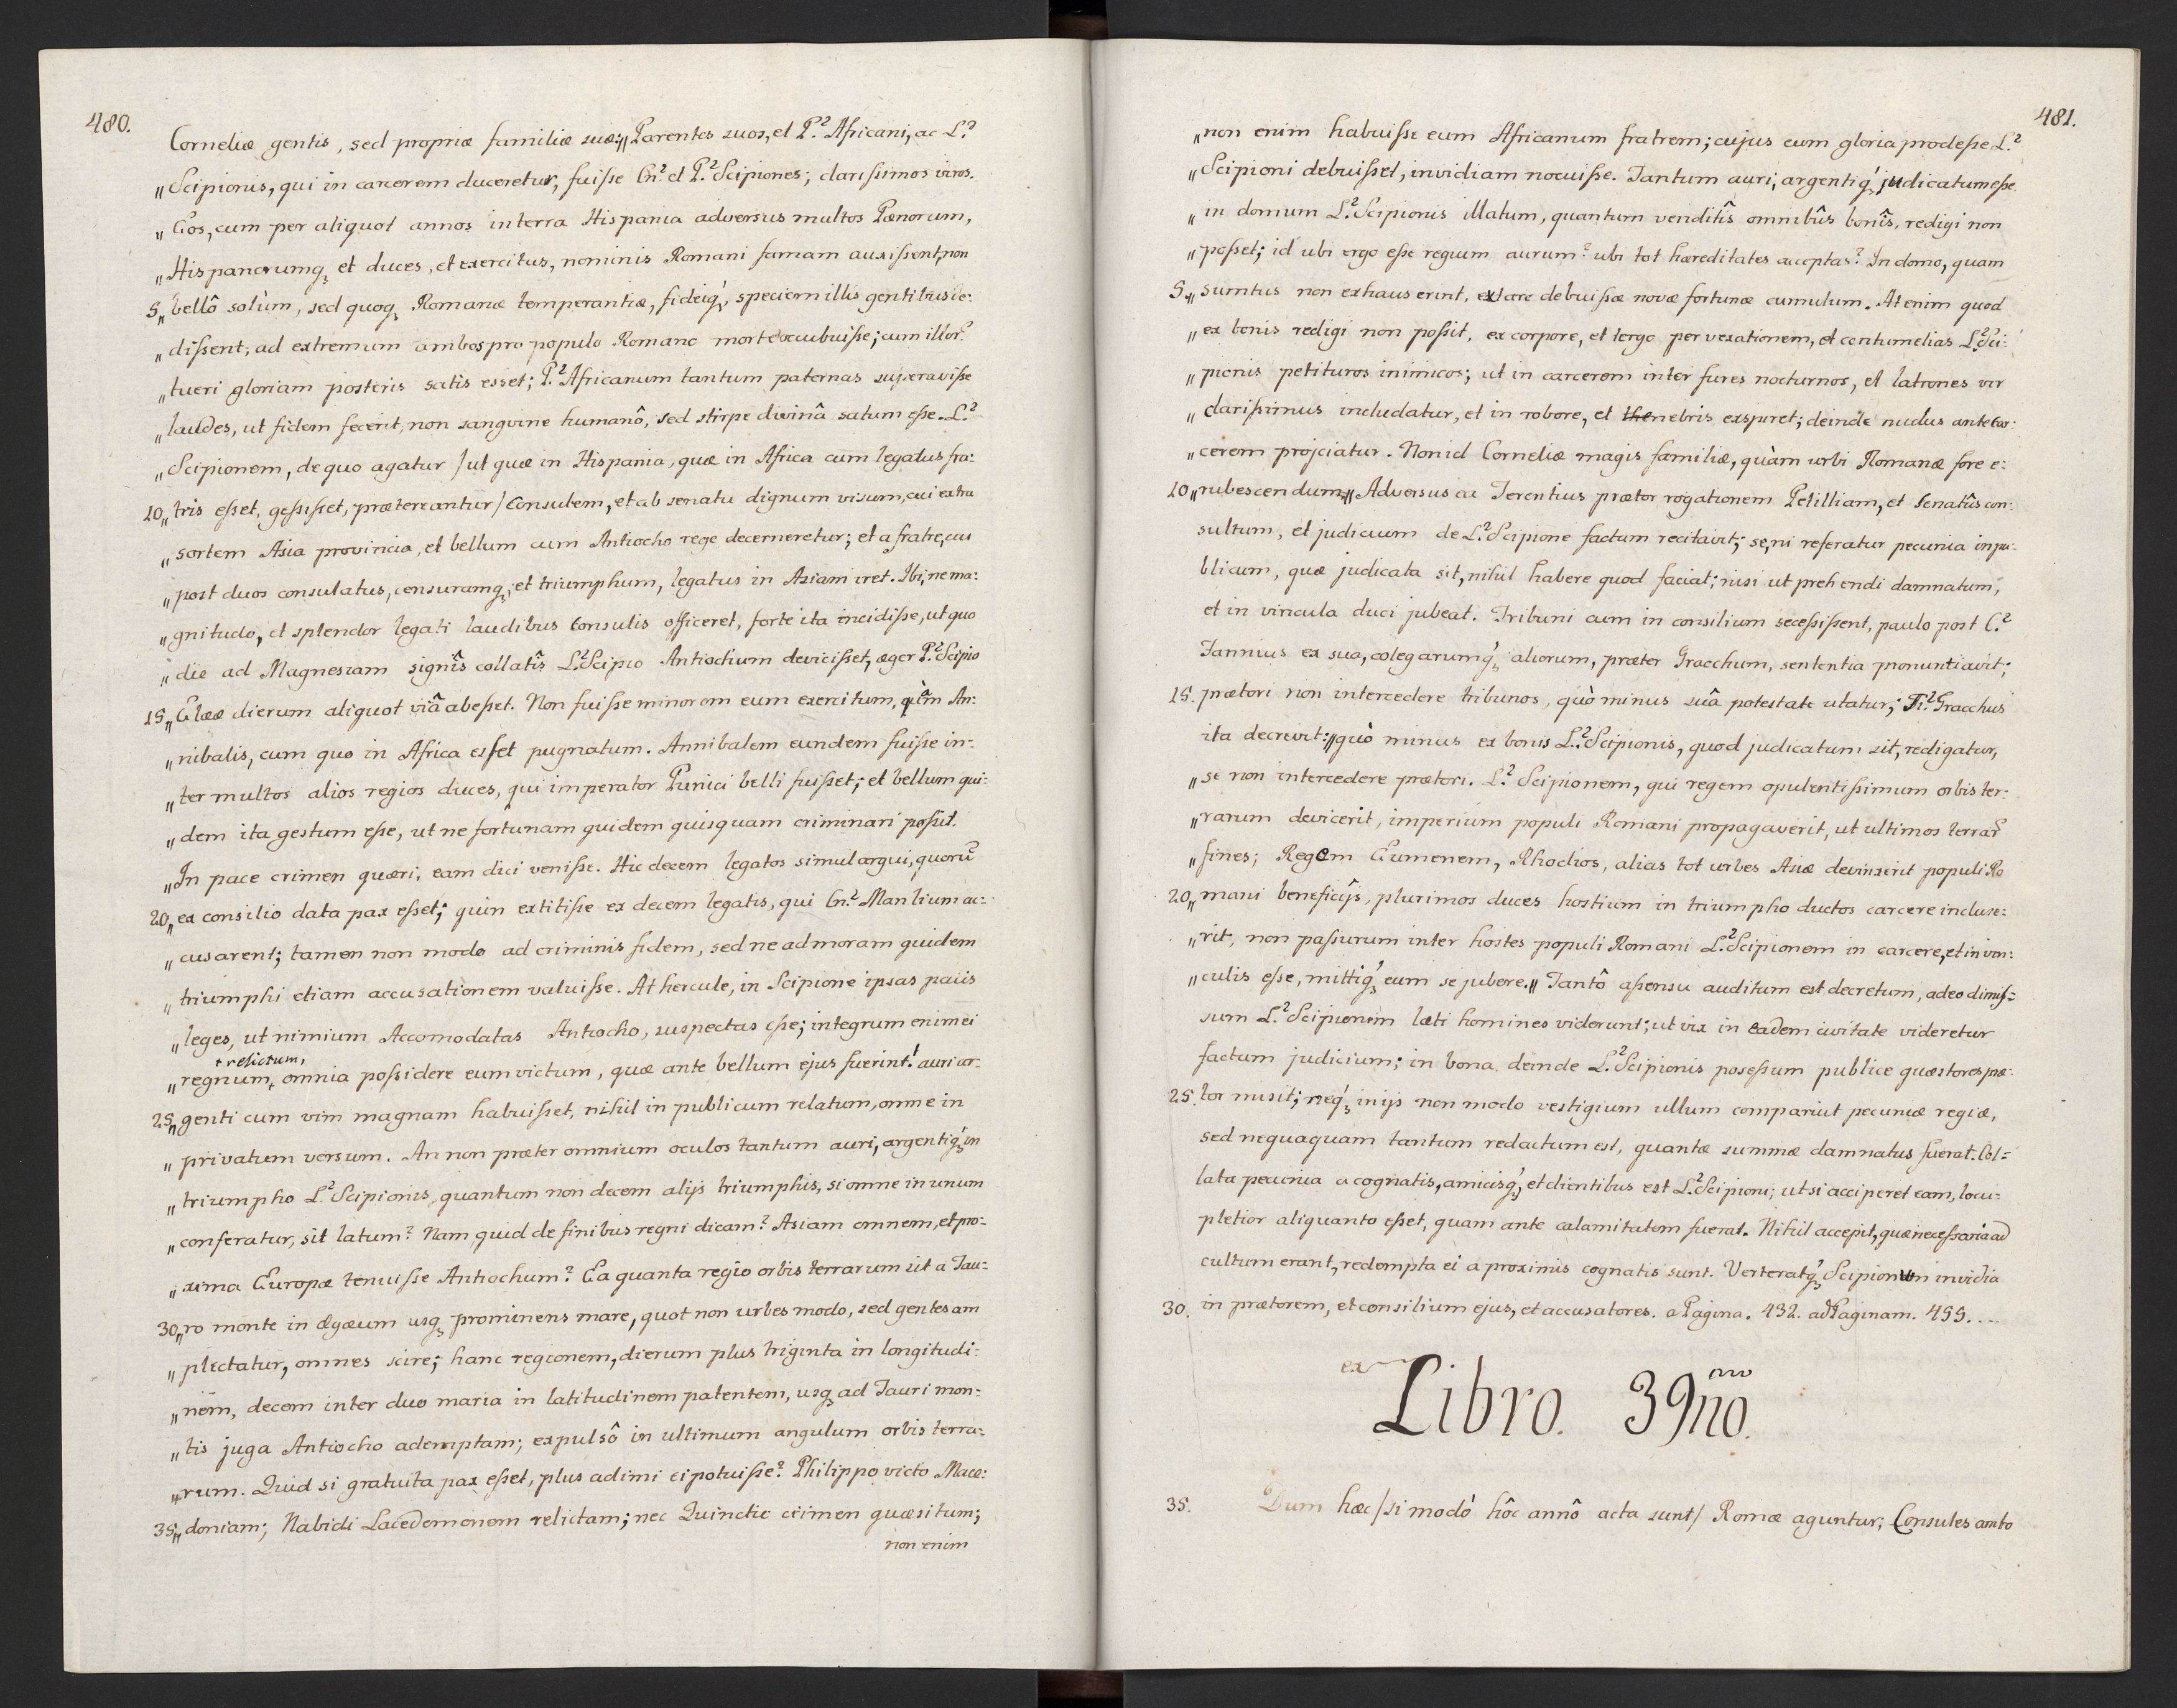 480.
Corneliæ gentis, sed propriæ familiæ suæ:,, Parentes suos, et P.² Africani, ac L.²
„ Scipionis, qui in carcerem duceretur, fuisse Cn.² et P.² Scipiones; clarissimos viros.
„ Eos, cum per aliquot annos in terra Hispania adversus multos Pænorum,
„ Hispanorumq₃ et duces, et exercitus, nominis Romani famam auxissent, non
5„ bellô solùm, sed quoq₃ Romanæ temperantiæ, fideiq́₃ speciem illis gentibus de:
„ dissent; ad extremum ambos pro populo Romano morte occubuisse; cum illor̃
„ tueri gloriam posteris satis esset; P.² Africanum tantum paternas superavisse
„ laudes, ut fidem fecerit, non sanguine humanô, sed stirpe divinâ satum esse. L.²
„ Scipionem, de quo agatur / ut quæ in Hispania, quæ in Africa cum legatus fra:
10„ tris esset, gessisset, prætereantur / Consulem, et ab senatu dignum visum, cui extra
„ sortem Asia provincia, et bellum cum Antiocho rege decerneretur; et a fratre, cui
„ post duos consulatus, censuramq₃, et triumphum, legatus in Asiam iret. Ibi, ne ma:
„ gnitudo, et splendor legati laudibus Consulis officeret, forte ita incidisse, ut quo
„ die ad Magnesiam signîs collatîs L.² Scipio Antiochum devicisset, æger P.² Scipio
15„ Elææ dierum aliquot viâ abesset. Non fuisse minorem eum exercitum, quàm An:
„ nibalis, cum quo in Africa esset pugnatum. Annibalem eundem fuisse in-
„ ter multos alios regios duces, qui imperator Punici belli fuisset; et bellum qui-
„ dem ita gestum esse, ut ne fortunam quidem quisquam criminari possit.
„ In pace crimen quæri, eam dici venisse. Hic decem legatos simul argui, quorũ
20„ ex consilio data pax esset; quin extitisse ex decem legatis, qui Cn.² Manlium ac-
„ cusarent; tamen non modo ad criminis fidem, sed ne ad moram quidem
„ triumphi etiam accusationem valuisse. At hercule, in Scipione ipsas pacis
„ leges, ut nimium Accomodatas Antiocho, suspectas esse; integrum enim ei
+ relictum,
„ regnum, + omnia possidere eum victum, quæ ante bellum ejus fuerint! auri ar-
25„ genti cum vim magnam habuisset, nihil in publicum relatum, omne in
„ privatum versum. An non præter omnium oculos tantum auri, argentiq́₃ in
„ triumpho L.² Scipionis, quantum non decem alijs triumphis, si omne in unum
„ conferatur, sit latum? Nam quid de finibus regni dicam? Asiam omnem, et pro-
„ xima Europæ tenuisse Antiochum? Ea quanta regio orbis terrarum sit a Tau-
30„ ro monte in Ægæum usq₃ prominens mare, quot non urbes modo, sed gentes am
„ plectatur, omnes scire; hanc regionem, dierum plus triginta in longitudi-
„ nem, decem inter duo maria in latitudinem patentem, usq₃ ad Tauri mon-
„ tis juga Antiocho ademptam; expulsô in ultimum angulum orbis terra-
„ rum. Quid si gratuita pax esset, plus adimi ei potuisse? Philippo victo Mace:
35„ doniam; Nabidi Lacedemonem relictam; nec Quinctio crimen quæsitum;
non enim
481.
„ non enim habuisse eum Africanum fratrem; cujus cum gloria prodesse L.²
„ Scipioni debuisset, invidiam nocuisse. Tantum auri, argentiq́₃ judicatum esse
„ in domum L.² Scipionis illatum, quantum venditîs omnibûs bonîs, redigi non
„ posset; id ubi ergo esse regium aurum? ubi tot hæreditates acceptas? In domo, quam
5.„ sumtus non exhauserint, extare debuisse novæ fortunæ cumulum. At enim quod
„ ex bonis redigi non possit, ex corpore, et tergo per vexationem, et contumelias L.² Sci:
„ pionis petituros inimicos; ut in carcerem inter fures nocturnos, et latrones vir
„ clarissimus includatur, et in robore, et thenebris exspiret; deinde nudus ante Car:
„ cerem projciatur. Non id Corneliæ magis familiæ, quàm urbi Romanæ fore e:
10„ rubescendum,, Adversus ea Terentius prætor rogationem Petilliam, et Senatûs con:
sultum, et judicium de L.² Scipione factum recitavit; se, ni referatur pecunia in pu-
blicum, quæ judicata sit, nihil habere quod faciat; nisi ut prehendi damnatum,
et in vincula duci jubeat. Tribuni cum in consilium secessissent, paulo post C.²
Fannius ex sua, colegarumq́₃ aliorum, præter Gracchum, sententia pronuntiavit;
15. prætori non intercedere tribunos, quò minus suâ potestate utatur; Ti.² Gracchus
ita decrevit:,, quò minus ex bonis L.² Scipionis, quod judicatum sit, redigatur,
„ se non intercedere prætori. L.² Scipionem, qui regem opulentissimum orbis ter:
„ rarum devicerit, imperium populi Romani propagaverit, ut ultimos terrar̃
„ fines; Regem Eumenem, Rhodios, alias tot urbes Asiæ devinxerit populi Ro
20„ mani beneficijs, plurimos duces hostium in triumpho ductos carcere incluse:
„ rit, non passurum inter hostes populi Romani L.² Scipionem in carcere, et in vin:
„ culis esse, mittiq́₃ eum se jubere.,, Tantô assensu auditum est decretum, adeo dimis=
sum L.² Scipionem læti homines viderunt; ut vix in eadem civitate videretur
factum judicium; in bona deinde L.² Scipionis posessum publice quæstores præ-
25. tor misit; neq́₃ in ijs non modo vestigium ullum comparuit pecuniæ regiæ,
sed nequaquam tantum redactum est, quantæ summæ damnatus fuerat. Col=
lata pecunia a cognatis, amicisq́₃, et clientibus est L.² Scipioni; ut si acciperet eam, locu-
pletior aliquanto esset, quam ante calamitatem fuerat. Nihil accepit, quæ necessaria ad
cultum erant, redempta ei a proximis cognatis sunt. Verteratq́₃ Scipionum invidia
30. in prætorem, et consilium ejus, et accusatores. a Pagina. 432. ad Paginam. 455. ...
ex
Libro. 39no.
35. Dum hæc / si modò hôc annô acta sunt / Romæ aguntur; Consules ambo